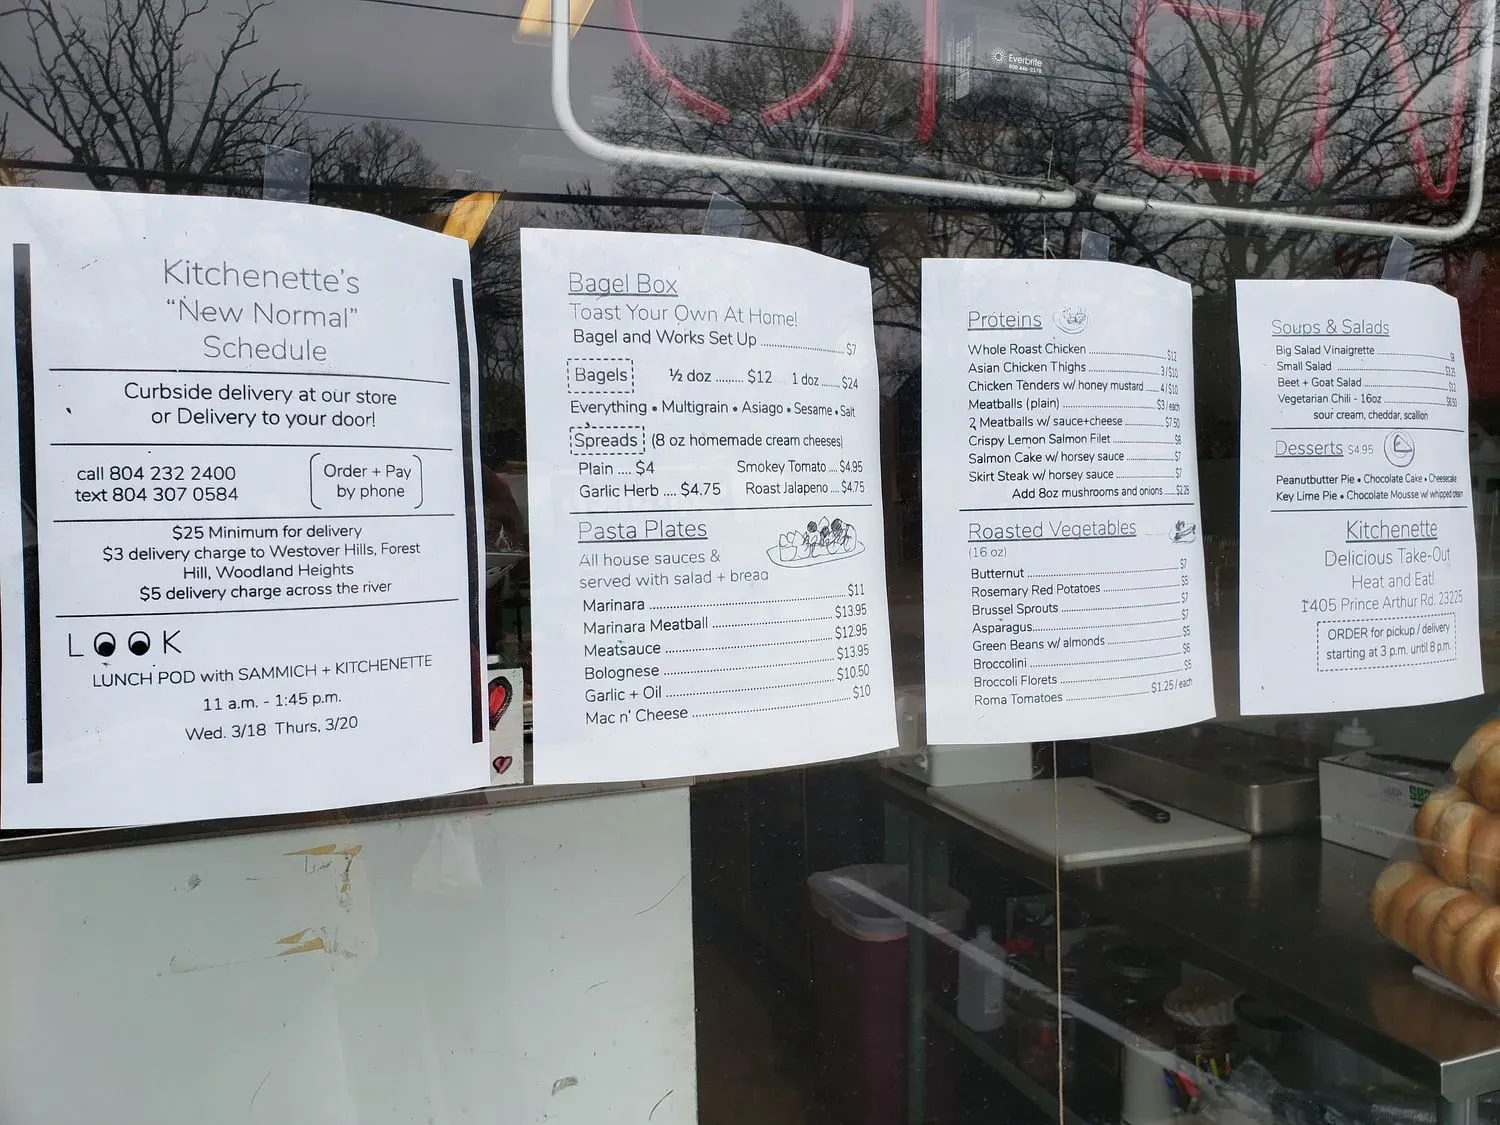 OPEN
Everbrite
Kitchenette's
"New Normal"
Schedule
Curbside delivery at our store
or Delivery to your door!
call 804 232 2400
text 804 307 0584
Order + Pay
by phone
$25 Minimum for delivery
$3 delivery charge to Westover Hills, Forest
Hill, Woodland Heights
$5 delivery charge across the river
LOOK
LUNCH POD with SAMMICH + KITCHENETTE
11 a.m. - 1:45 p.m.
Wed. 3/18 Thurs, 3/20
Bagel Box
Toast Your Own At Home!
Bagel and Works Set Up ........ $7
Bagels ½ doz ........ $12 1 doz ..... $24
Everything • Multigrain • Asiago • Sesame • Salt
Spreads (8 oz homemade cream cheeses)
Plain .... $4 Smokey Tomato .... $4.95
Garlic Herb .... $4.75 Roast Jalapeno .... $4.75
Pasta Plates
All house sauces &
served with salad + bread
Marinara ........ $11
Marinara Meatball ........ $13.95
Meatsauce ........ $12.95
Bolognese ........ $13.95
Garlic + Oil ........ $10.50
Mac n' Cheese ........ $10
Proteins
Whole Roast Chicken ........ $12
Asian Chicken Thighs ........ 3/$10
Chicken Tenders w/ honey mustard .... 4/$10
Meatballs (plain) ........ $3/each
2 Meatballs w/ sauce+cheese ........ $7.50
Crispy Lemon Salmon Filet ........ $8
Salmon Cake w/ horsey sauce ........ $7
Skirt Steak w/ horsey sauce ........ $7
Add 8oz mushrooms and onions .... $2.25
Roasted Vegetables
(16 oz)
Butternut ........ $7
Rosemary Red Potatoes ........ $5
Brussel Sprouts ........ $7
Asparagus ........ $7
Green Beans w/ almonds ........ $5
Broccolini ........ $6
Broccoli Florets ........ $5
Roma Tomatoes ........ $1.25/each
Soups & Salads
Big Salad Vinaigrette ........
Small Salad ........
Beet + Goat Salad ........ $12
Vegetarian Chili - 16oz ........ $6.50
sour cream, cheddar, scallion
Desserts $4.95
Peanutbutter Pie • Chocolate Cake • Cheesecake
Key Lime Pie • Chocolate Mousse w/ whipped cream
Kitchenette
Delicious Take-Out
Heat and Eat!
1405 Prince Arthur Rd. 23225
ORDER for pickup / delivery
starting at 3 p.m. until 8 p.m.